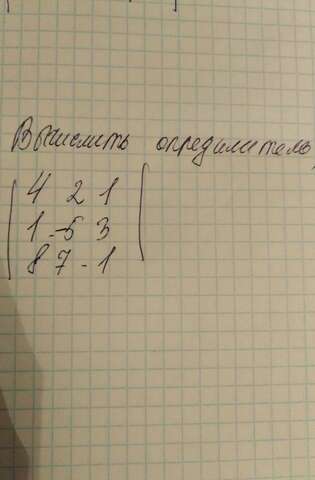 Вычислить определитель
4 2 1
1 -5 3
8 7 -1